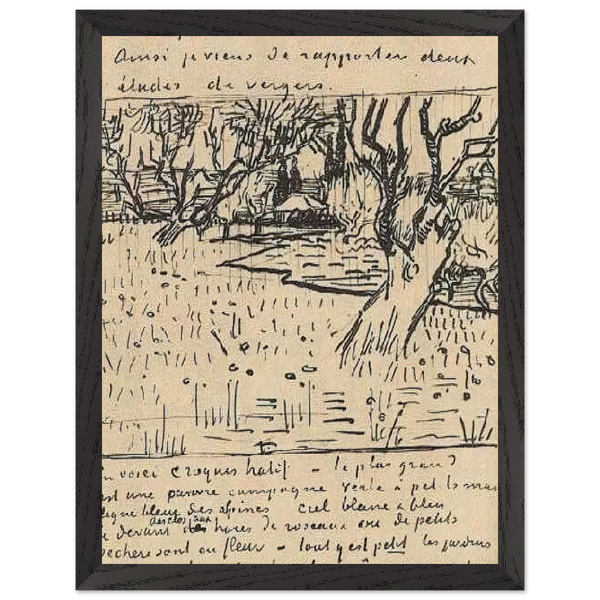 Ainsi je viens de rapporter deux
études de vergers.
En voici croquis hatif – le plus grand
est une pauvre campagne verte à petits mas
ligne bleue des alpines ciel blanc & bleu
devant des clos aux haies de roseaux où de petits
pechers sont en fleur – tout y est petit les jardins